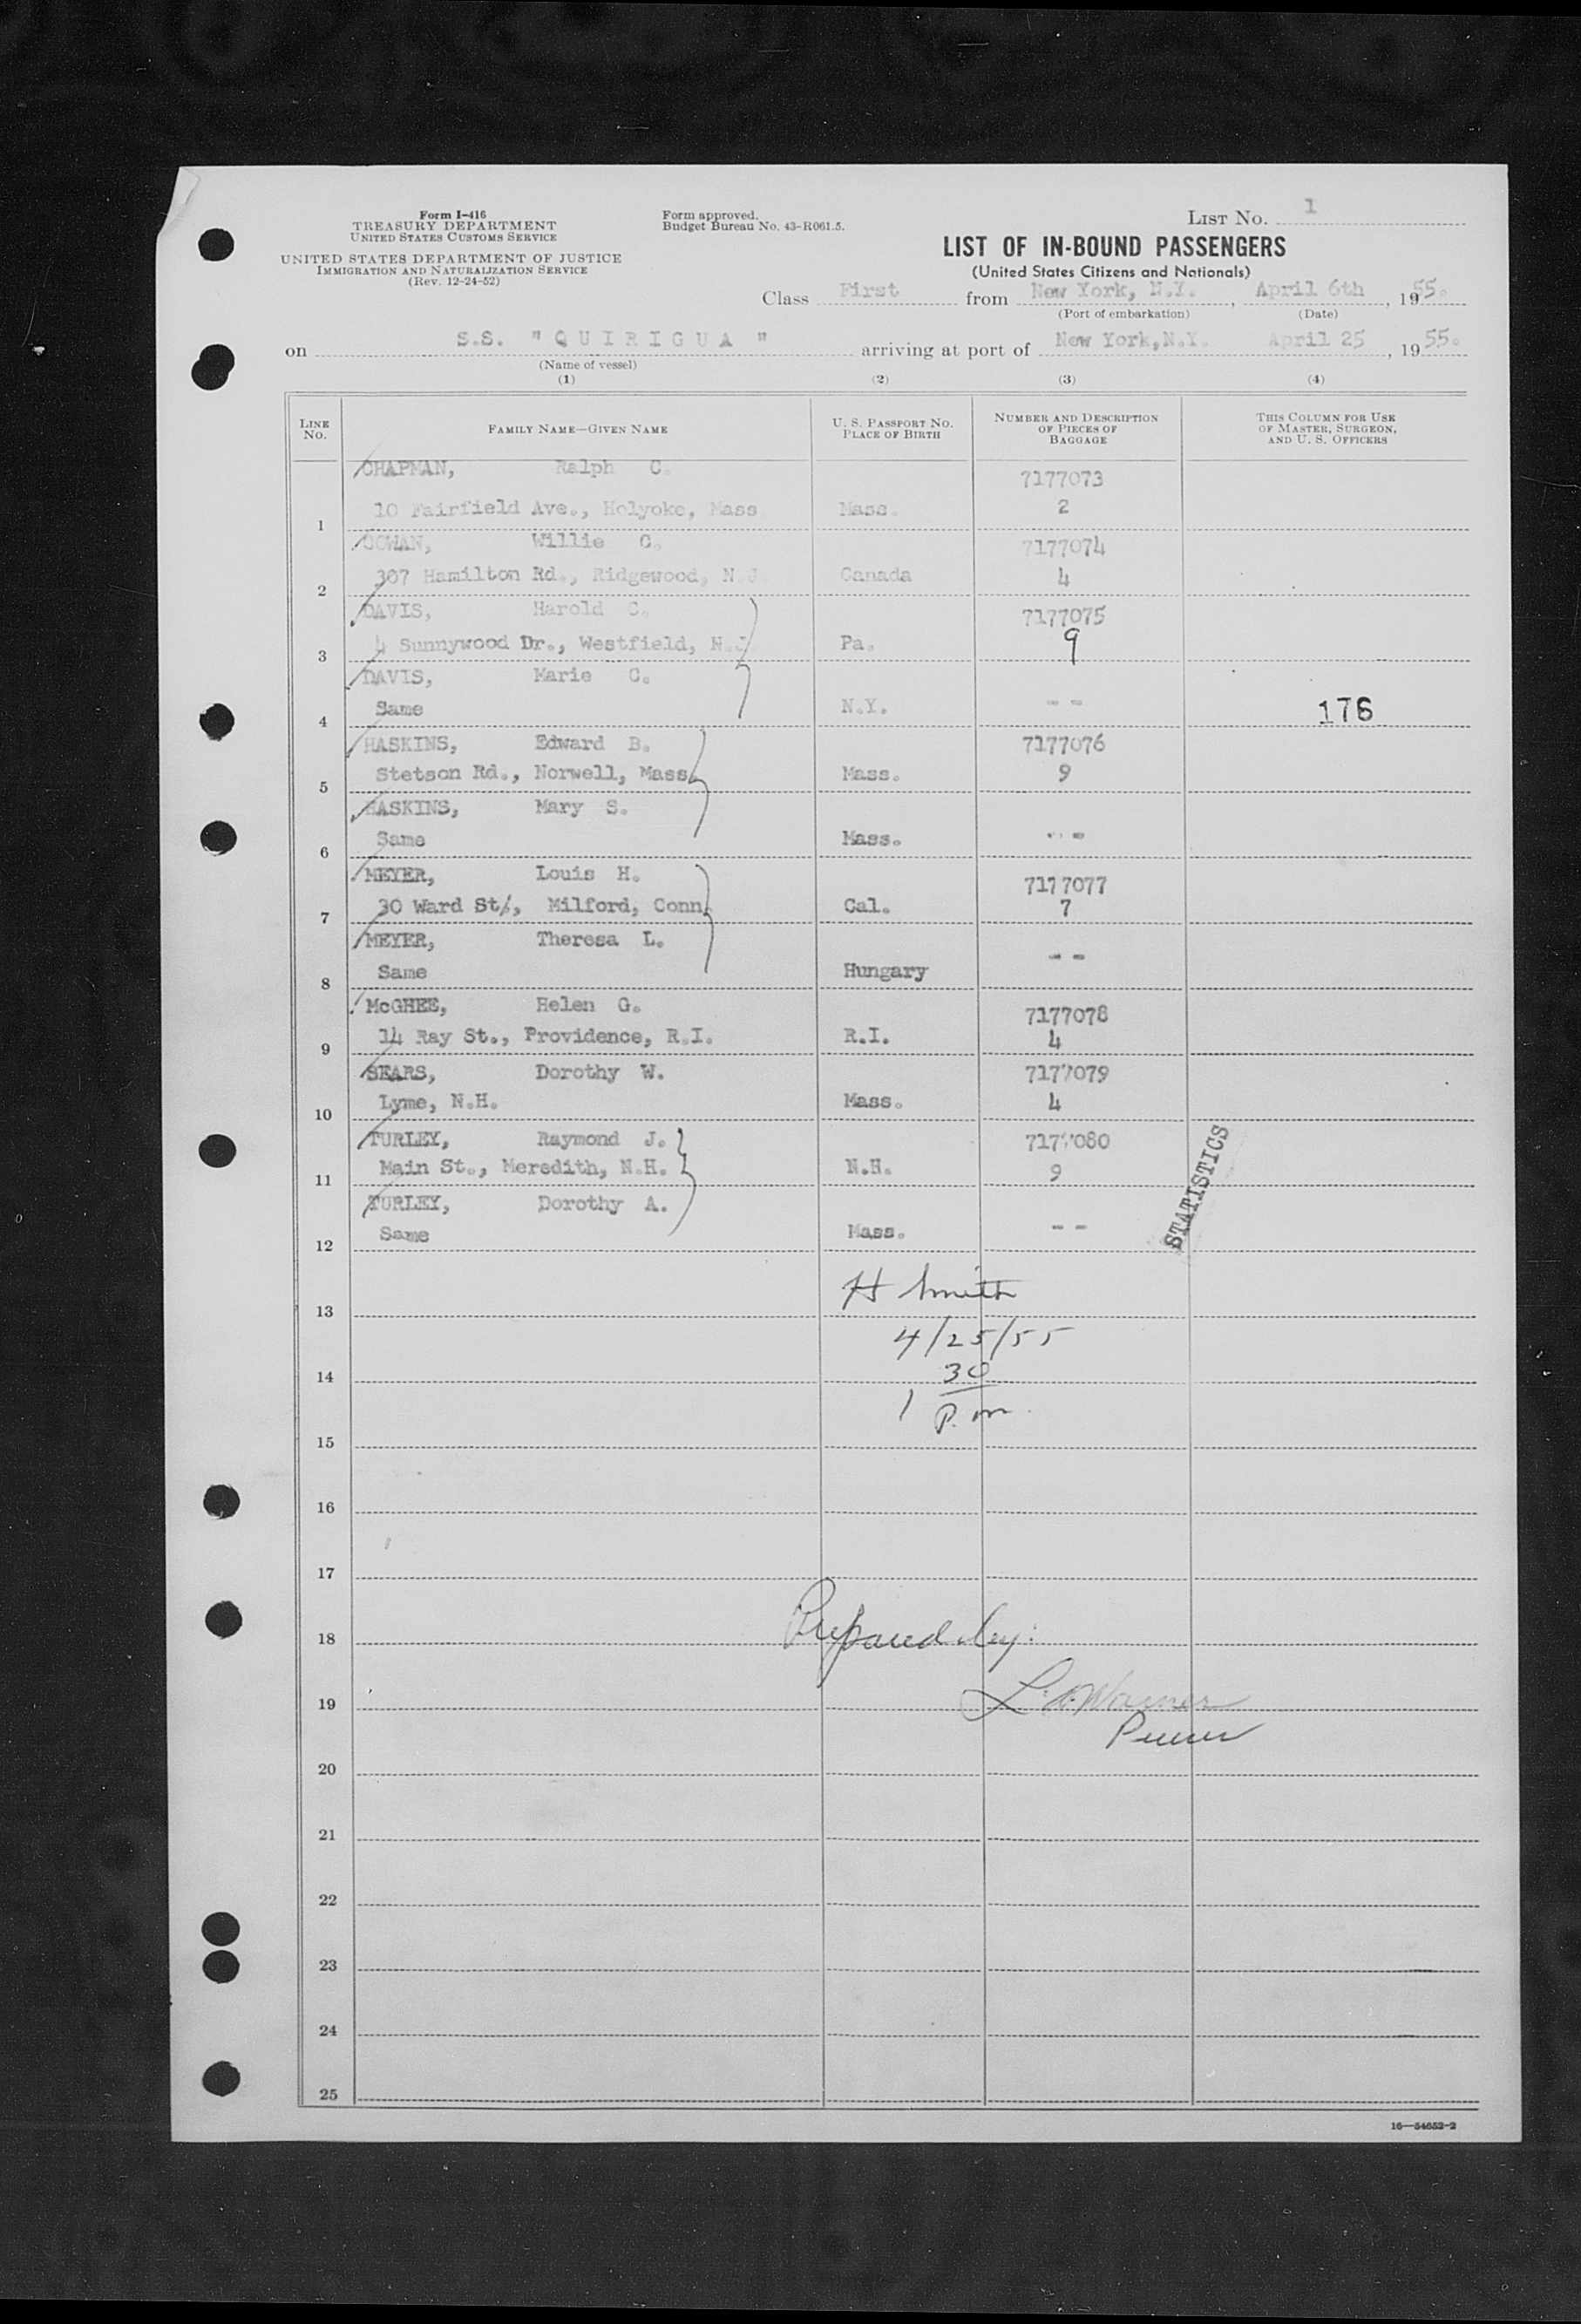 Form I-416
TREASURY DEPARTMENT
UNITED STATES CUSTOMS SERVICE
UNITED STATES DEPARTMENT OF JUSTICE
IMMIGRATION AND NATURALIZATION SERVICE
(Rev. 12-24-52)
Form approved.
Budget Bureau No. 43-R061.5.
LIST NO. 1
LIST OF IN-BOUND PASSENGERS
(United States Citizens and Nationals)
Class First from New York, N.Y. , April 6th , 1955.
(Port of embarkation) (Date)
on S.S. "QUIRIGUA" arriving at port of New York,N.Y. April 25 , 1955.
(Name of vessel)
(1) (2) (3) (4)
LINE NO. FAMILY NAME—GIVEN NAME U. S. PASSPORT NO. PLACE OF BIRTH NUMBER AND DESCRIPTION OF PIECES OF BAGGAGE THIS COLUMN FOR USE OF MASTER, SURGEON, AND U. S. OFFICERS
CHAPMAN, Ralph C. 7177073
1 10 Fairfield Ave., Holyoke, Mass Mass. 2
COWAN, Willie C. 7177074
2 307 Hamilton Rd., Ridgewood, N.J. Canada 4
DAVIS, Harold C. 7177075
3 4 Sunnywood Dr., Westfield, N.J. Pa. 9
DAVIS, Marie C.
4 Same N.Y. -- 176
HASKINS, Edward B. 7177076
5 Stetson Rd., Norwell, Mass. Mass. 9
HASKINS, Mary S.
6 Same Mass. --
MEYER, Louis H. 7177077
7 30 Ward St/., Milford, Conn. Cal. 7
MEYER, Theresa L.
8 Same Hungary --
McGHEE, Helen G. 7177078
9 14 Ray St., Providence, R.I. R.I. 4
SEARS, Dorothy W. 7177079
10 Lyme, N.H. Mass. 4
TURLEY, Raymond J. 7177080
11 Main St., Meredith, N.H. N.H. 9
TURLEY, Dorothy A.
12 Same Mass. --
STATISTICS
H Smith
13
4/25/55
14 30
1 P.m.
15
16
17
18 Prepared by:
19 Warner
Purser
20
21
22
23
24
25
16—54652-2